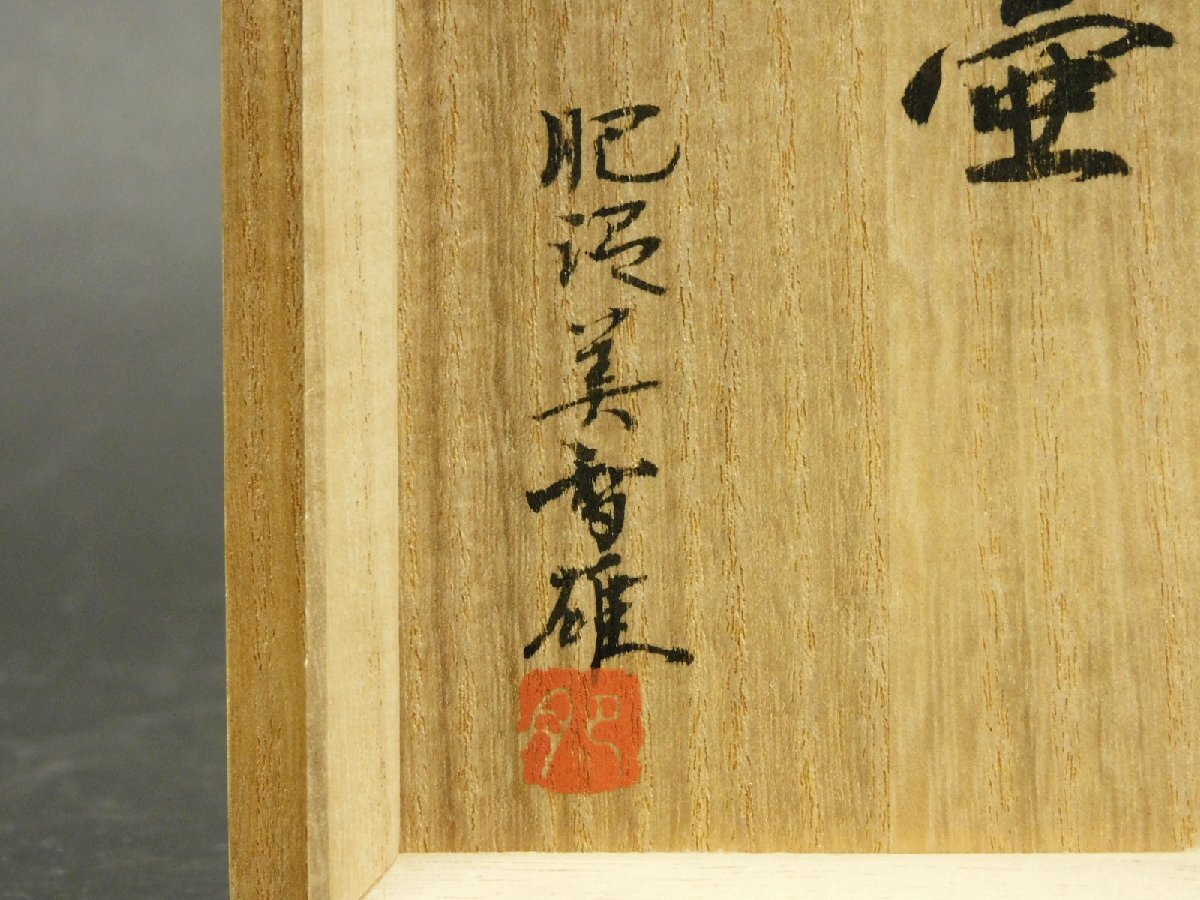 壷
肥沼美智雄
肥